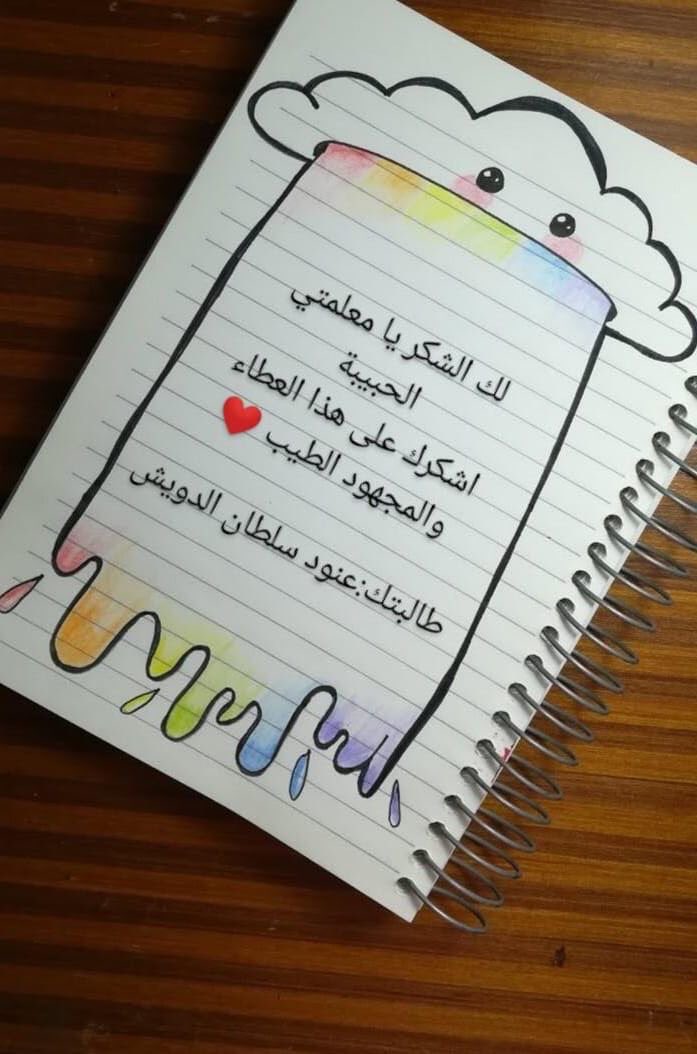 لك الشكر يا معلمتي
الحبيبة
اشكرك على هذا العطاء
والمجهود الطيب ❤️
طالبتك:عنود سلطان الدويش